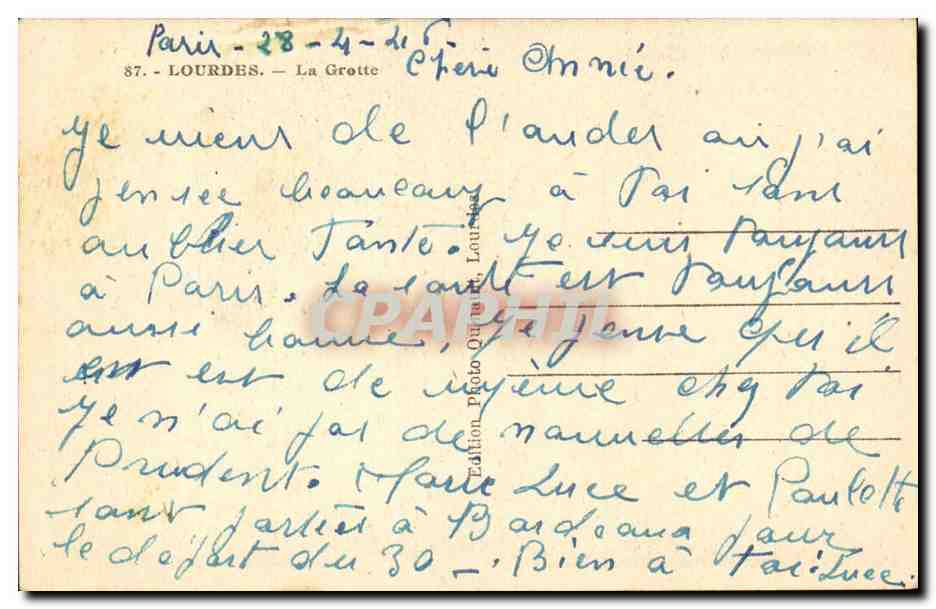 Paris - 28-4-46
87. - LOURDES. - La Grotte
Chère Annie.
Je viens de l'andes où j'ai
pensée beaucoup à toi sans
oublier Tante. Je suis toujours
à Paris. La santé est toujours
aussi bonne, Je pense qu'il
est de même chez toi
Je n'ai pas de nouvelles de
Prudent. Marie Luce et Paulette
sont parties à Bordeaux pour
le départ du 30 - Bien à toi Luce.
Edition Photo Quesaint, Lourdes
CPAPHIL